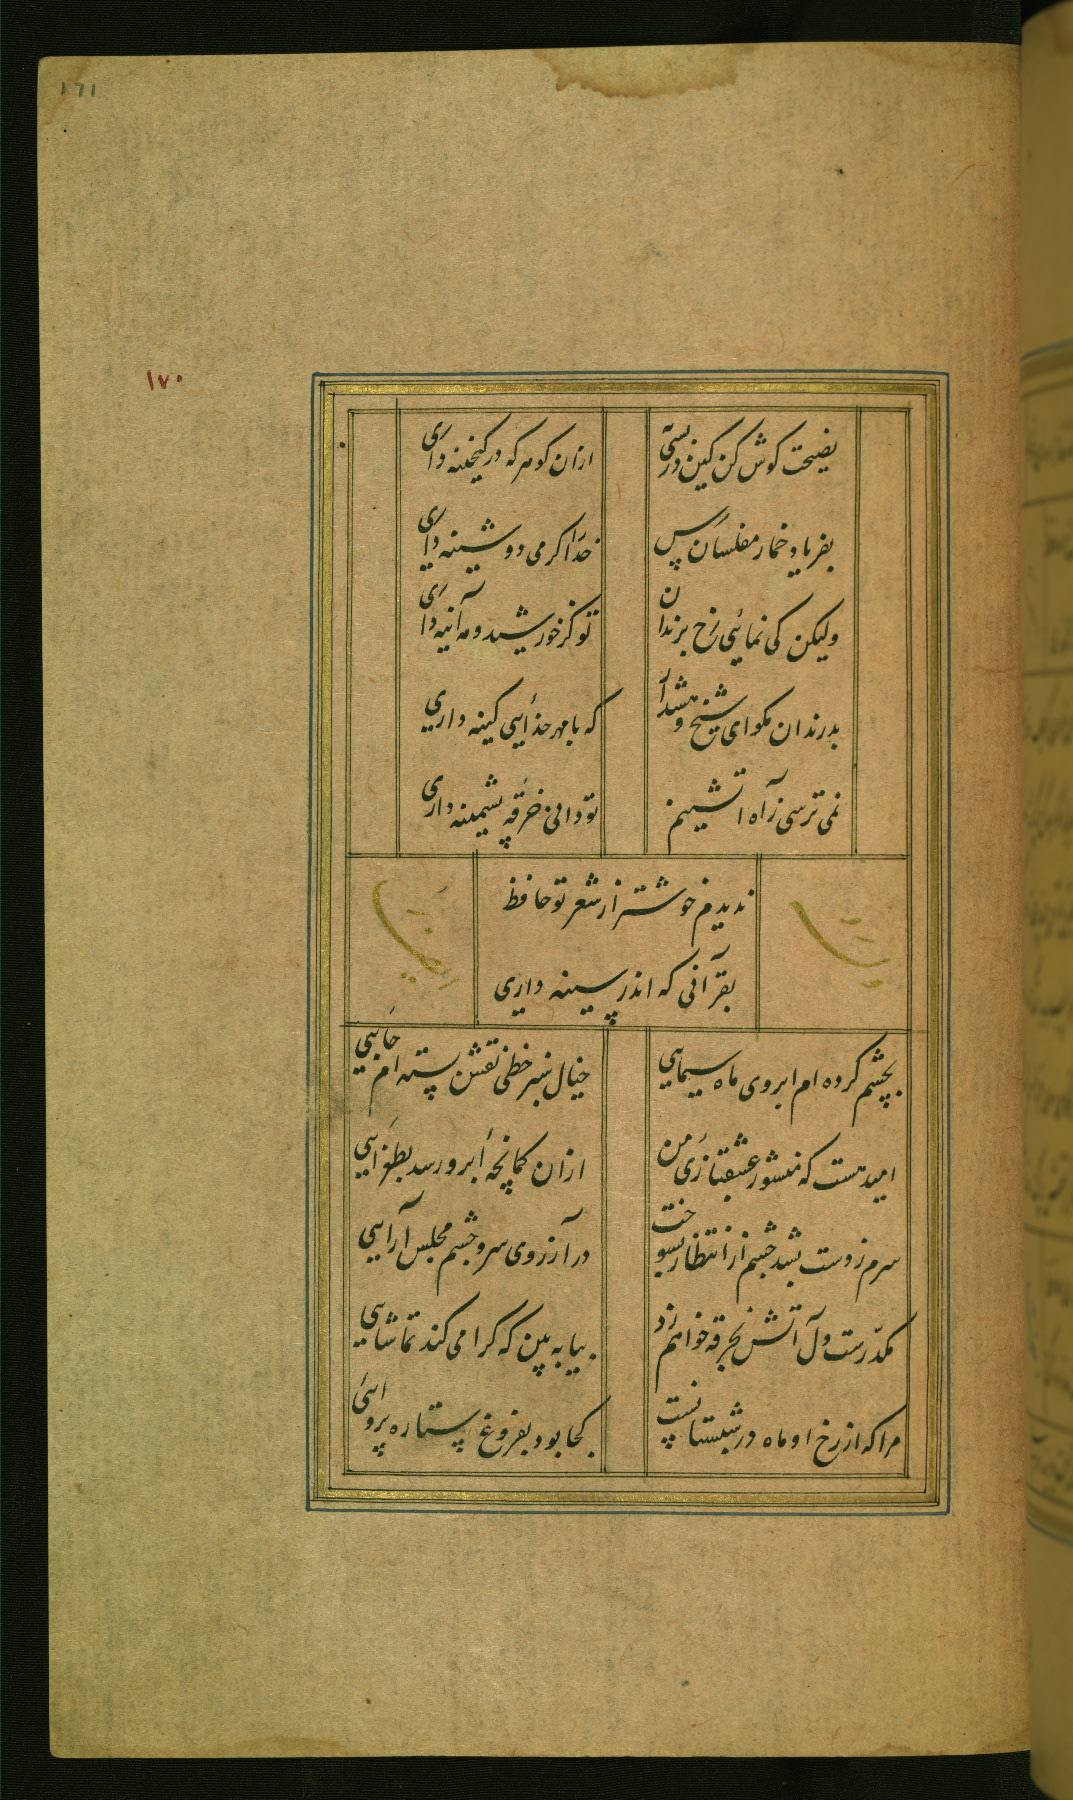 ۱۶۱
۱۷۰
نصیحت کوش کن کین در بسی
ازان کوهر که در کنجینه داری
بفریاد خمار مفلسان رس
خدا را کر می دوشینه داری
ولیکن کی نمائی رخ برندان
تو کز خورشید و مه آئینه داری
بد رندان مکو ای شیخ و هشدار
که با مهر خدایی کینه داری
نمی ترسی ز آه آتشینم
تو دانی خرقه پشمینه داری
ندیدم خوشتر از شعر تو حافظ
بقرآنی که اندر سینه داری
بچشم کرده ام ابروی ماه سیمایی
خیال سبز خطی نقش بسته ام جایی
امید هست که منشور عشقبازی من
ازان کمانچه ابرو رسد بطغرایی
سرم ز دست بشد چشم از انتظار بسوخت
در آرزوی سر و چشم مجلس آرایی
مکدرست دل آتش بخرقه خواهم زد
بیا به بین که کرا می کند تماشایی
مرا که از رخ او ماه در شبستانست
کجا بود بفروغ ستاره پروائی